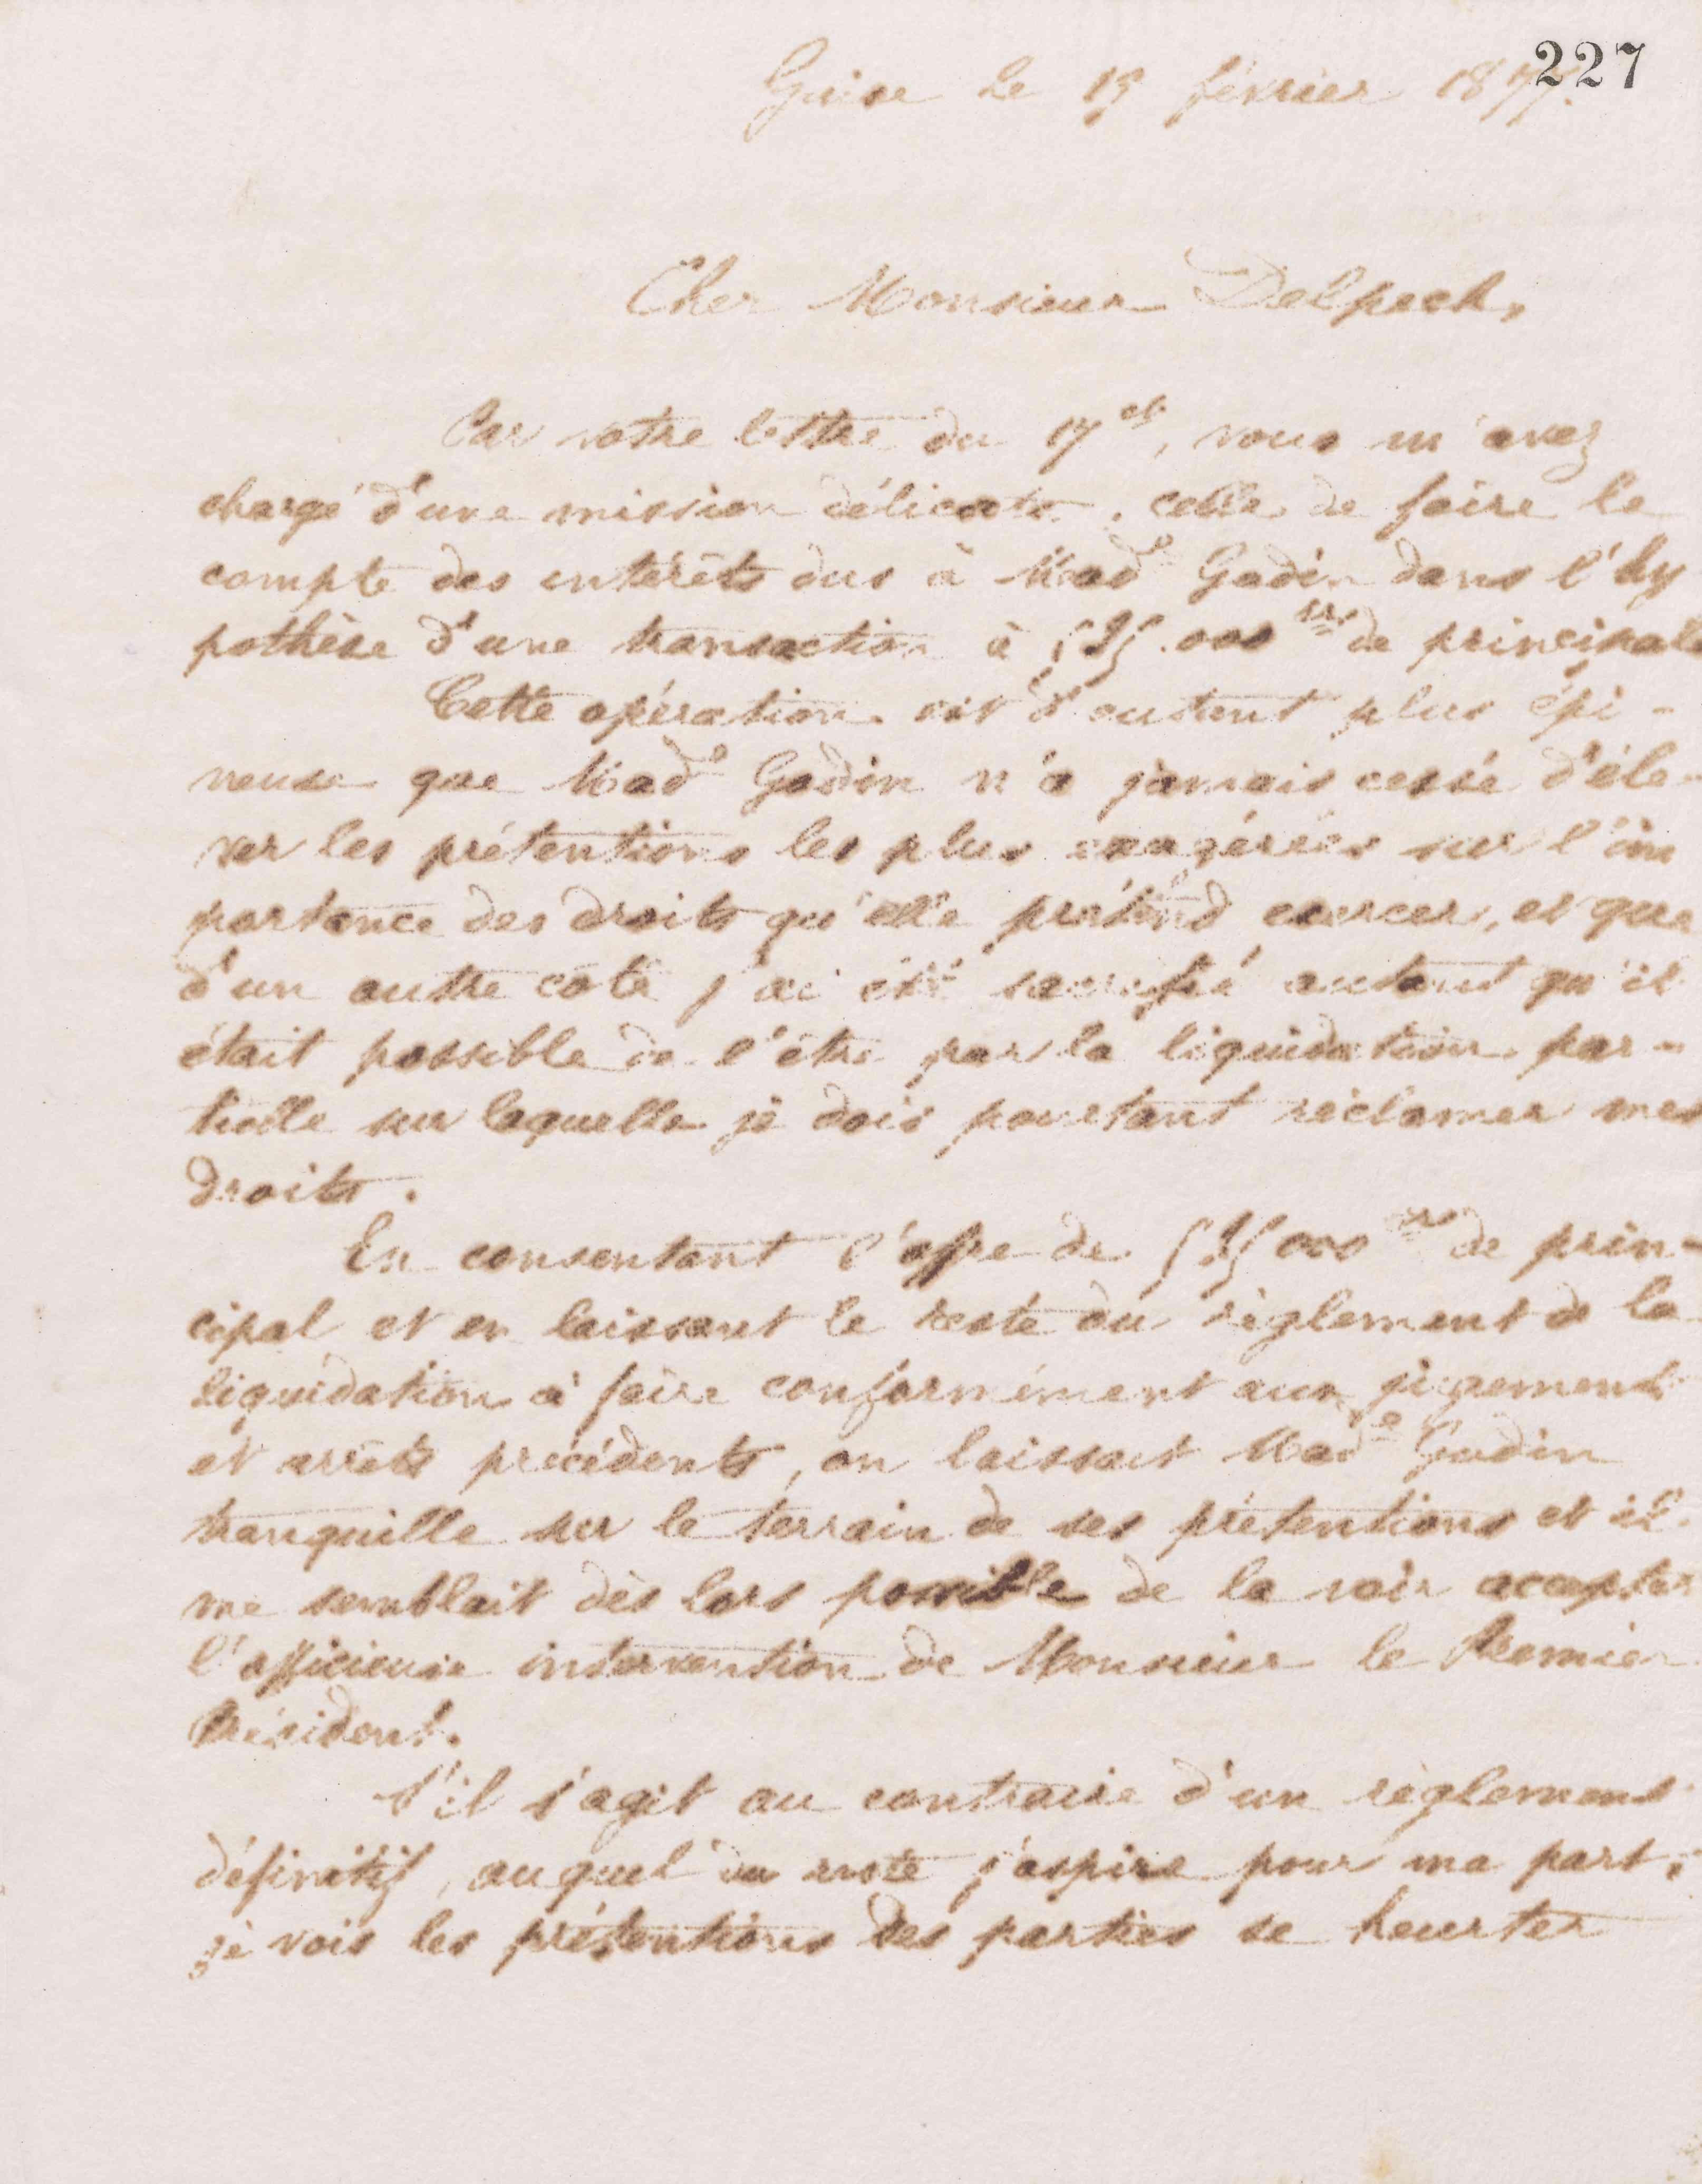 227
Guise le 19 février 1877.
Cher Monsieur Delpech,
Par votre lettre du 17 ct, vous m'avez
chargé d'une mission délicate. celle de faire le
compte des intérêts dus à Made Godin dans l'hy
pothèse d'une transaction à .000 frs de principal
Cette opération est d'autant plus épi-
neuse que Made Godin n'a jamais cessé d'éle-
ver les prétentions les plus exagérées sur l'im
portance des droits qu'elle prétend exercer, et que
d'un autre côté j'ai été sacrifié autant qu'il
était possible de l'être par la liquidation par-
tielle sur laquelle je dois pourtant réclamer mes
droits.
En consentant l'offre de 000 frs de prin-
cipal et en laissant le reste du règlement de la
liquidation à faire conformément aux jugements
et arrêts précédents, on laissait Made Godin
tranquille sur le terrain de ses prétentions et il
me semblait dès lors possible de la voir accepter
l'officieuse intervention de Monsieur le Premier
Président.
S'il s'agit au contraire d'un règlement
définitif, auquel du reste j'aspire pour ma part,
je vois les prétentions des parties se heurter